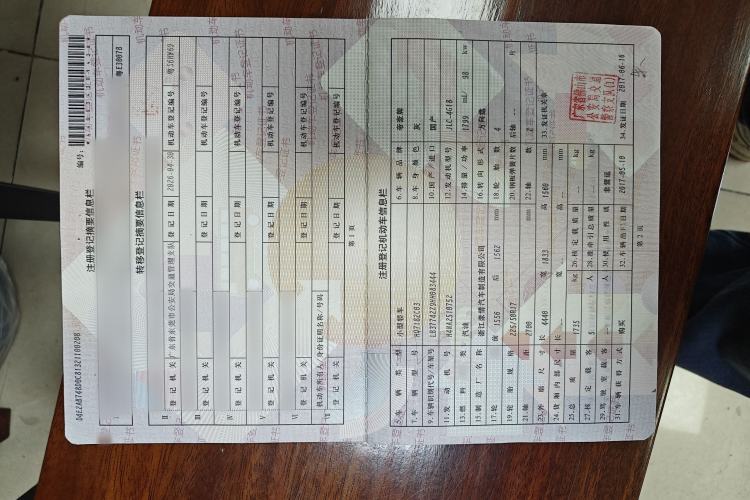 编号:
04EZA8748D0C81321100208
注册登记摘要信息栏
粤E30078
转移登记摘要信息栏
Ⅱ 登记机关 广东省东莞市公安局交通管理支队 登记日期 2026-04-30 机动车登记编号 粤S68W69
Ⅲ
登记机关 登记日期 机动车登记编号
Ⅳ
登记机关 登记日期 机动车登记编号
Ⅴ
登记机关 登记日期 机动车登记编号
Ⅵ
登记机关 登记日期 机动车登记编号
机动车所有人/身份证明名称/号码
Ⅶ
登记机关 登记日期 机动车登记编号
第 1 页
注册登记机动车信息栏
5.车辆类型 小型轿车 6.车辆品牌
7.车辆型号 HQ7182C03 8.车身颜色 灰
9.车辆识别代号/车架号 10.国产/进口 国产
11.发动机号 12.发动机型号 JLC-4G18
13.燃料种类 汽油 14.排量/功率 1799 ml/ 98 kw
15.制造厂名称 浙江豪情汽车制造有限公司 16.转向形式 方向盘
17.轮距 前 1556 后 1562 mm 18.轮胎数 4
19.轮胎规格 225/50R17 20.钢板弹簧片数 后轴 -- 片
21.轴距 2700 mm 22.轴数 2
23.外廓尺寸 长 4440 宽 1833 高 1560 mm 33.发证机关章
24.货厢内部尺寸 长 -- 宽 -- 高 -- mm
25.总质量 1735 kg 26.核定载质量 -- kg
27.核定载客 5 人 28.准牵引总质量 -- kg
29.驾驶室载客 -- 人 30.使用性质 非营运
31.车辆获得方式 购买 32.车辆出厂日期 2017-05-10 34.发证日期 2017-06-16
第 2 页